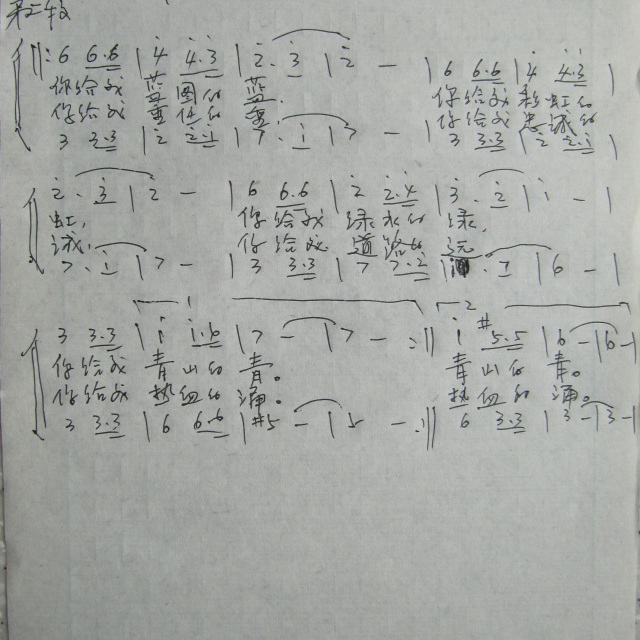 第二段
‖: 6 6.6 | 4 4.3 | 2. 3 | 2 — | 6 6.6 | 4 4.3 |
你给我 蓝图的 蓝. 你给我 彩虹的
你给我 的 . 你给我 忠诚的
3 3.3 | 2 2.1 | 7. 1 | 7 — | 3 3.3 | 2 2.1 |
2. 3 | 2 — | 6 6.6 | 2 2.4 | 3. 2 | 1 — |
虹, 你给我 绿水的 绿,
诚, 你给我 道路的 远
7. 1 | 7 — | 3 3.3 | 7 7.2 | . 1 | 6 — |
1 2
3 3.3 | 1 1.6 | 7 — | 7 — :‖ 1 #5.5 | 6 — | 6 — |
你给我 青山的 青。 青山的 青。
你给我 热血的 涌。 热血的 涌。
3 3.3 | 6 6.6 | #5 — | 5 — :‖ 6 3.3 | 3 — | 3 — |